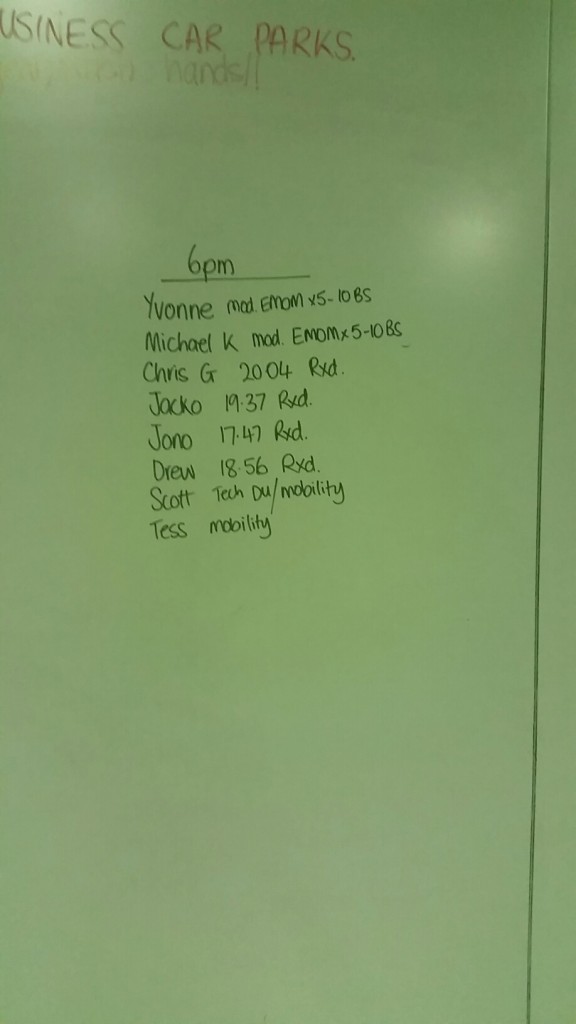 USINESS CAR PARKS.
hands!!
6pm
Yvonne mod. EMOM x5-10BS
Michael K mod. EMOMx5-10BS
Chris G 20 04 Rxd.
Jacko 19.37 Rxd.
Jono 17.47 Rxd.
Drew 18.56 Rxd.
Scott Tech DU/mobility
Tess mobility